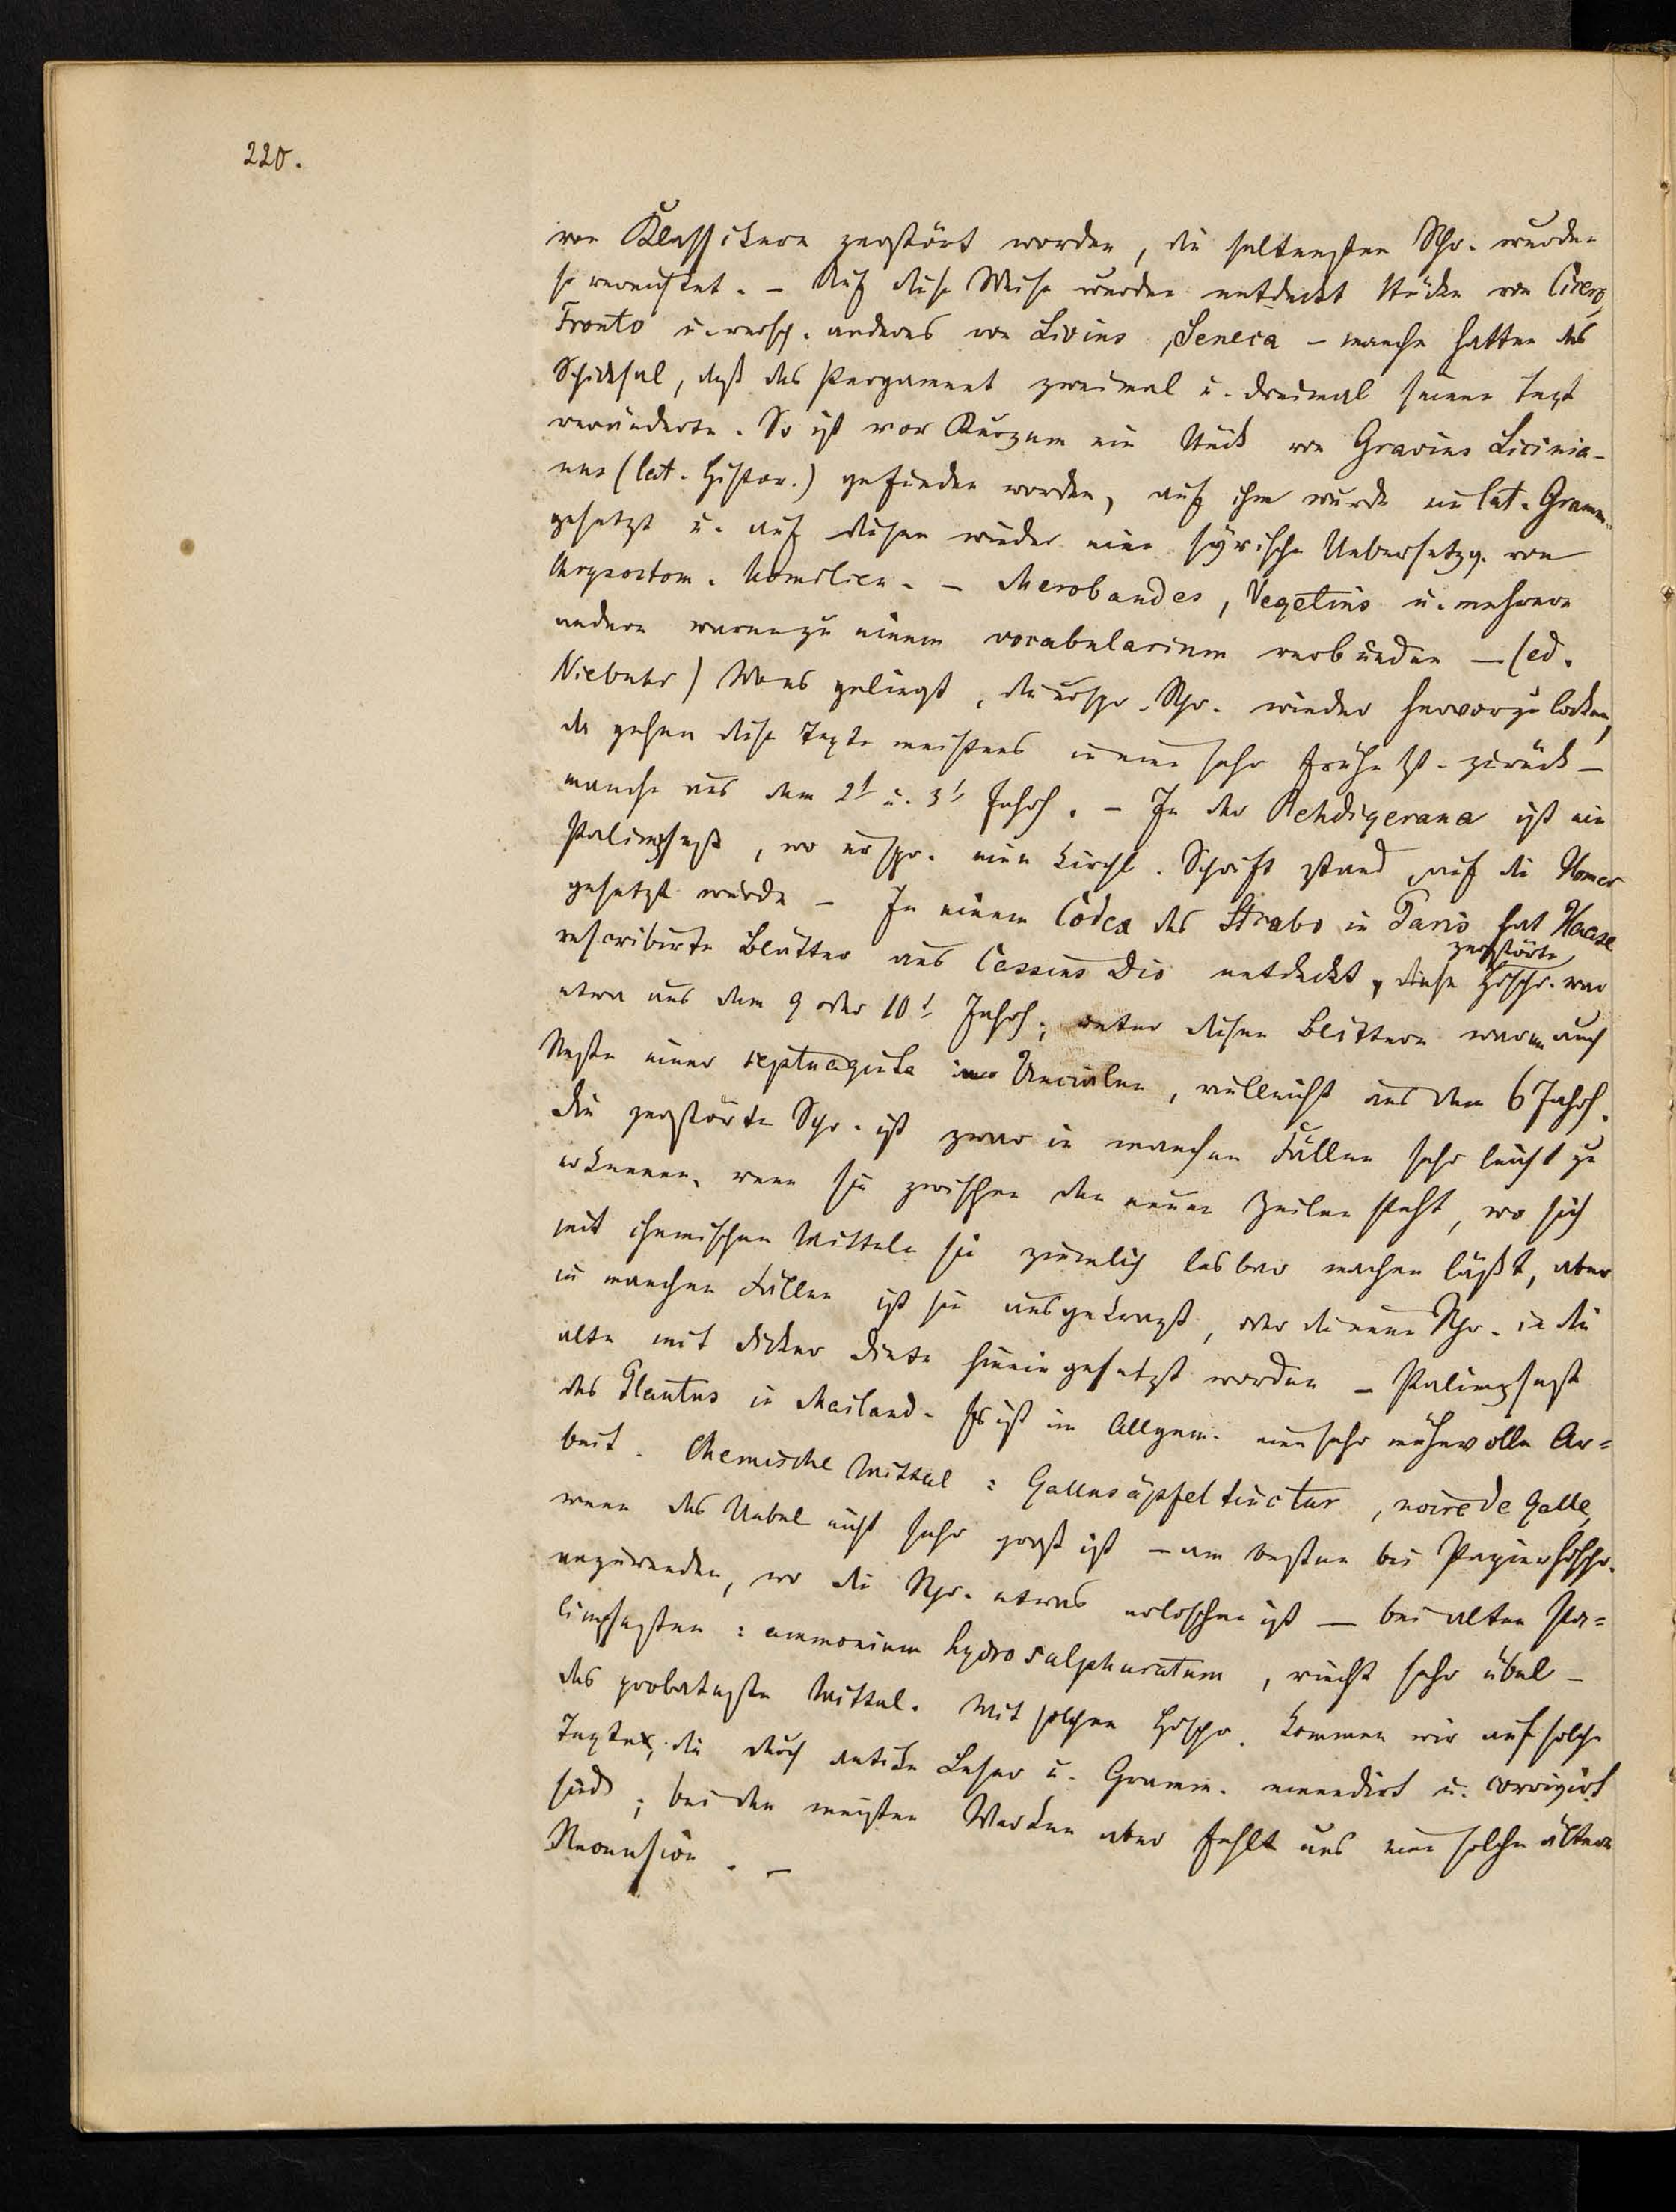 220.
von Klassikern zerstört worden, die seltensten Schr. wurden
so vernichtet. – Auf diese Weise wurden entdeckt Stücke von Cicero,
Fronto u. versch. anderes von Livius, Seneca – manche hatten das
Schicksal, daß das Pergament zweimal u. dreimal seinen Text
veränderte. So ist vor Kurzem ein Stück von Granius Licinia-
nus (lat. Histor.) gefunden worden, auf ihm wurde ein lat. Gramm.
gesetzt u. auf diesen wieder eine syrische Uebersetzg. von
Chrysostom. Homilien. – Merobaudes, Vegetius u. mehrere
andere waren zu einem vocabularium verbunden – (ed.
Niebuhr) Wo es gelingt, die urspr. Schr. wieder hervorzulocken,
da gehen diese Texte meistens in eine sehr frühe Zt. zurück –
manche aus dem 2t u. 3t Jahrh. – In der Rehdigerana ist ein
Palimpsest, wo urspr. eine kirchl. Schrift stand, auf die Homer
gesetzt wurde – In einem Codex des Strabo in Paris hat Haase
rescribirte Blätter aus Cassius Dio entdeckt, diese zerstörte Hdschr. war
etwa aus dem 9 oder 10t Jahrh.; unter diesen Blättern waren auch
Reste einer septuaginta in Uncialen, vielleicht aus dem 6 Jahrh.
Die zerstörte Schr. ist zwar in manchen Fällen sehr leicht zu
erkennen, wenn sie zwischen den neuen Zeilen steht, wo sich
mit chemischen Mitteln sie ziemlich lesbar machen läßt, aber
in manchen Fällen ist sie ausgekratzt, oder die neue Schr. in die
alte mit dicker Dinte hinein gesetzt worden – Palimpsest
des Plautus in Mailand. Es ist im Allgem. eine sehr mühevolle Ar=
beit. Chemische Mittel: Gallusäpfeltinctur, noire de galle,
wenn das Uebel nicht sehr groß ist – am besten bei Papierhdschr.
anzuwenden, wo die Schr. etwas erloschen ist – bei alten Pa=
limpsesten: ammonium hydrosulphuratum, riecht sehr übel –
das probateste Mittel. Mit solchen Hdschr. kommen wir auf solche
Texte, die durch antike Leser u. Gramm. emendirt u. corrigirt
sind; bei den meisten Werken aber fehlt uns eine solche ältere
Recension. –